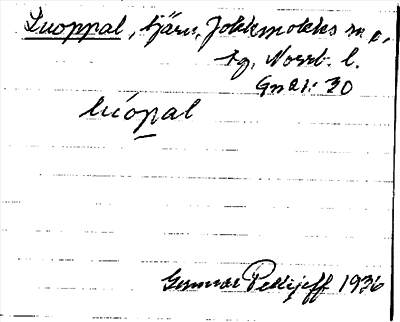 Luoppal, tjärn, Jokkmokks m.o.
sg, Norrb. l.
Gnat: 30
lúópal
Gunnar Pellijeff 1936